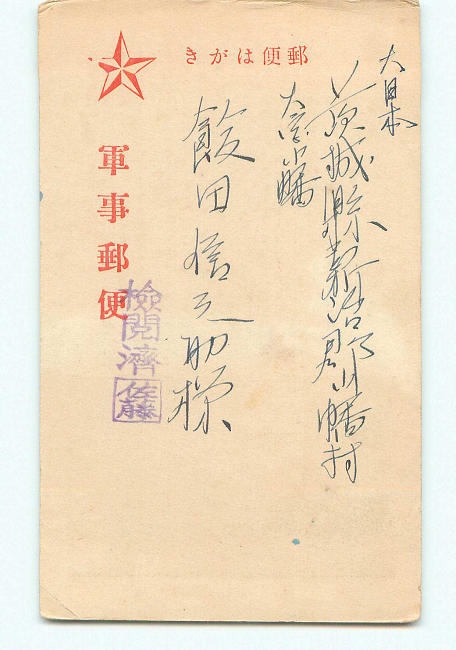 郵便はがき
大日本
茨城縣新治郡小幡村
大字小幡
飯田信之助様
軍事郵便
檢閲濟
佐藤